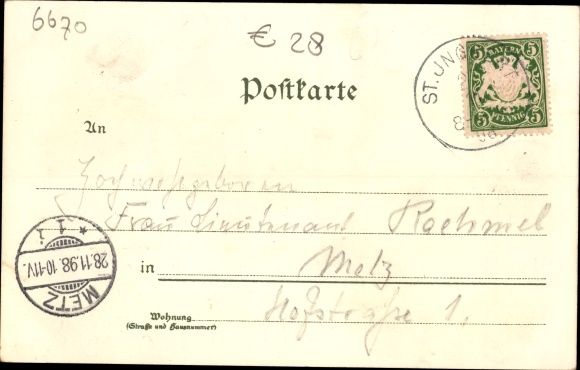 6670
€ 28
ST. JNG
5 BAYERN 5
5 PFENNIG 5
Postkarte
An
Hochwohlgeboren
Frau Lieutenant Rochmel
in Metz
Hofstraße 1.
Wohnung
(Straße und Hausnummer)
METZ
28.11.98. 10-11V.
* 1 i